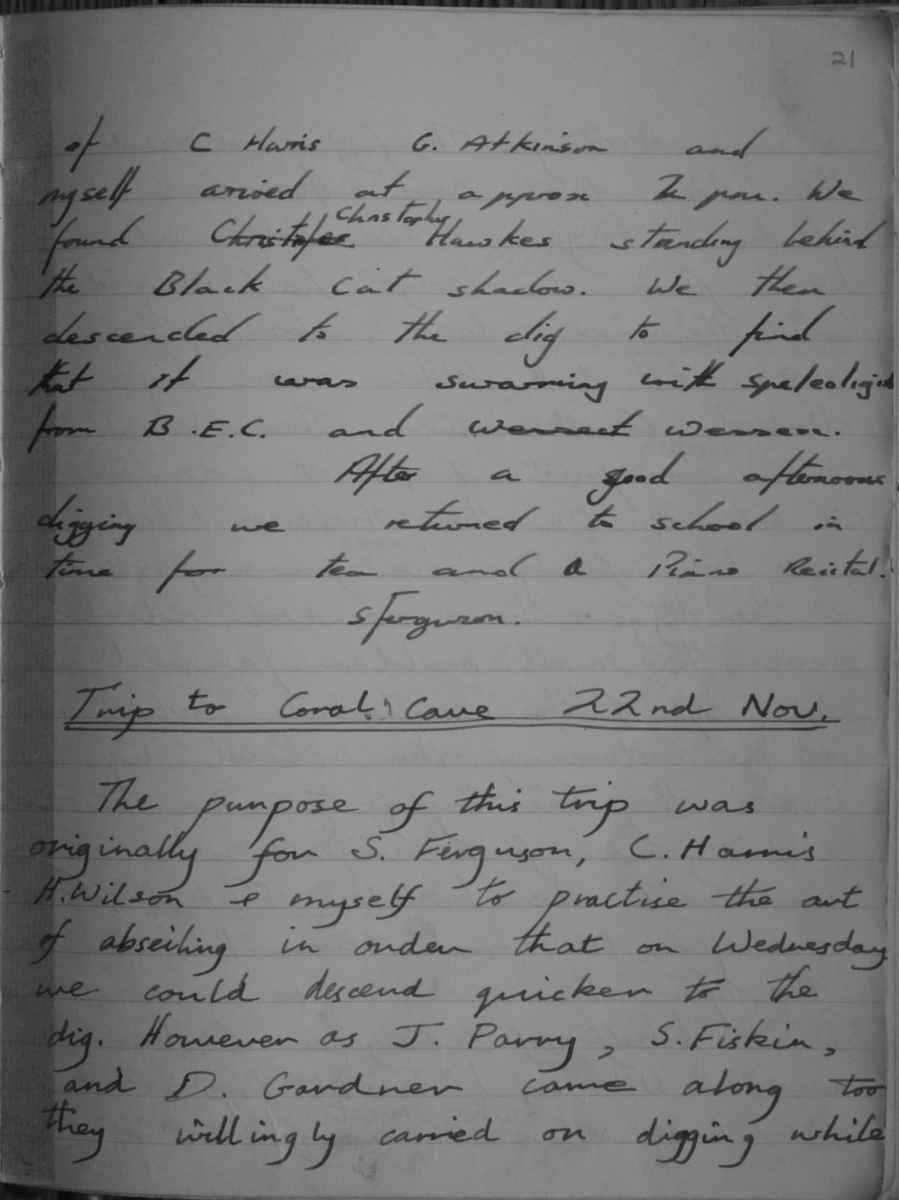 21
of C Harris G. Atkinson and
myself arived at approx 2 pm. We
Christopher
found Christofer Hawkes standing behind
the Black Cat shadow. We then
descended to the dig to find
that it was swarming with
from B.E.C. and Wessect Wessex.
After a good afternoons
digging we returned to school in
time for tea and a Piano Recital.
S Ferguson.
Trip to Coral Cave 22nd Nov.
The purpose of this trip was
originally for S. Ferguson, C. Harris
H. Wilson & myself to practise the art
of abseiling in order that on Wednesday
we could descend quicker to the
dig. However as J. Parry, S. Fiskin,
and D. Gardner came along too
they willingly carried on digging while